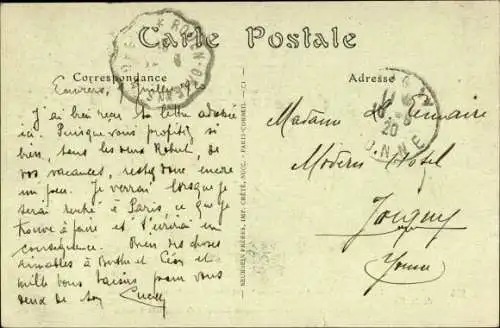 Carte Postale
Correspondance
Adresse
Juillet 1920
J'ai bien reçu ta lettre adressée
ici. Puisque vous profitez si
bien, tous les deux Robert, de
vos vacances, restez donc encore
un peu. Je verrai lorsque je
serai rentré à Paris ce que je
trouve à faire et t'écrirai en
conséquence. Bien des choses
aimables à et Céon et
mille bons baisers pour vous
deux de ton
NEURDEIN FRÈRES, IMP. CRÉTÉ, SUCC. - PARIS-CORBEIL
Madame Lemaire
Modern Hotel
Joigny
Yonne
20
YONNE